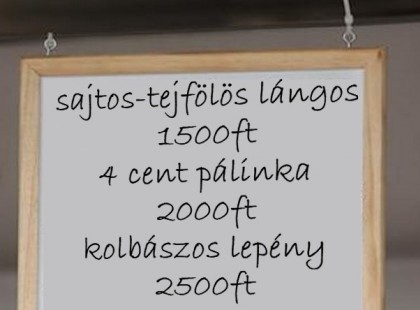 sajtos-tejfölös lángos
1500ft
4 cent pálinka
2000ft
kolbászos lepény
2500ft